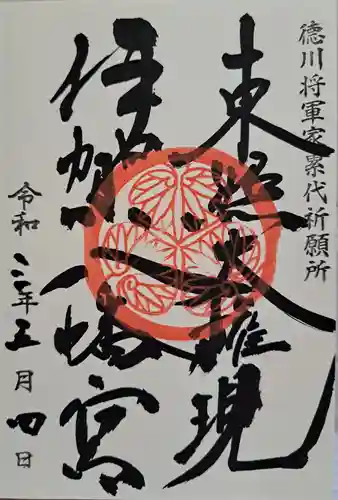 徳川将軍家累代祈願所
東照大権現
伊賀八幡宮
令和三年五月四日